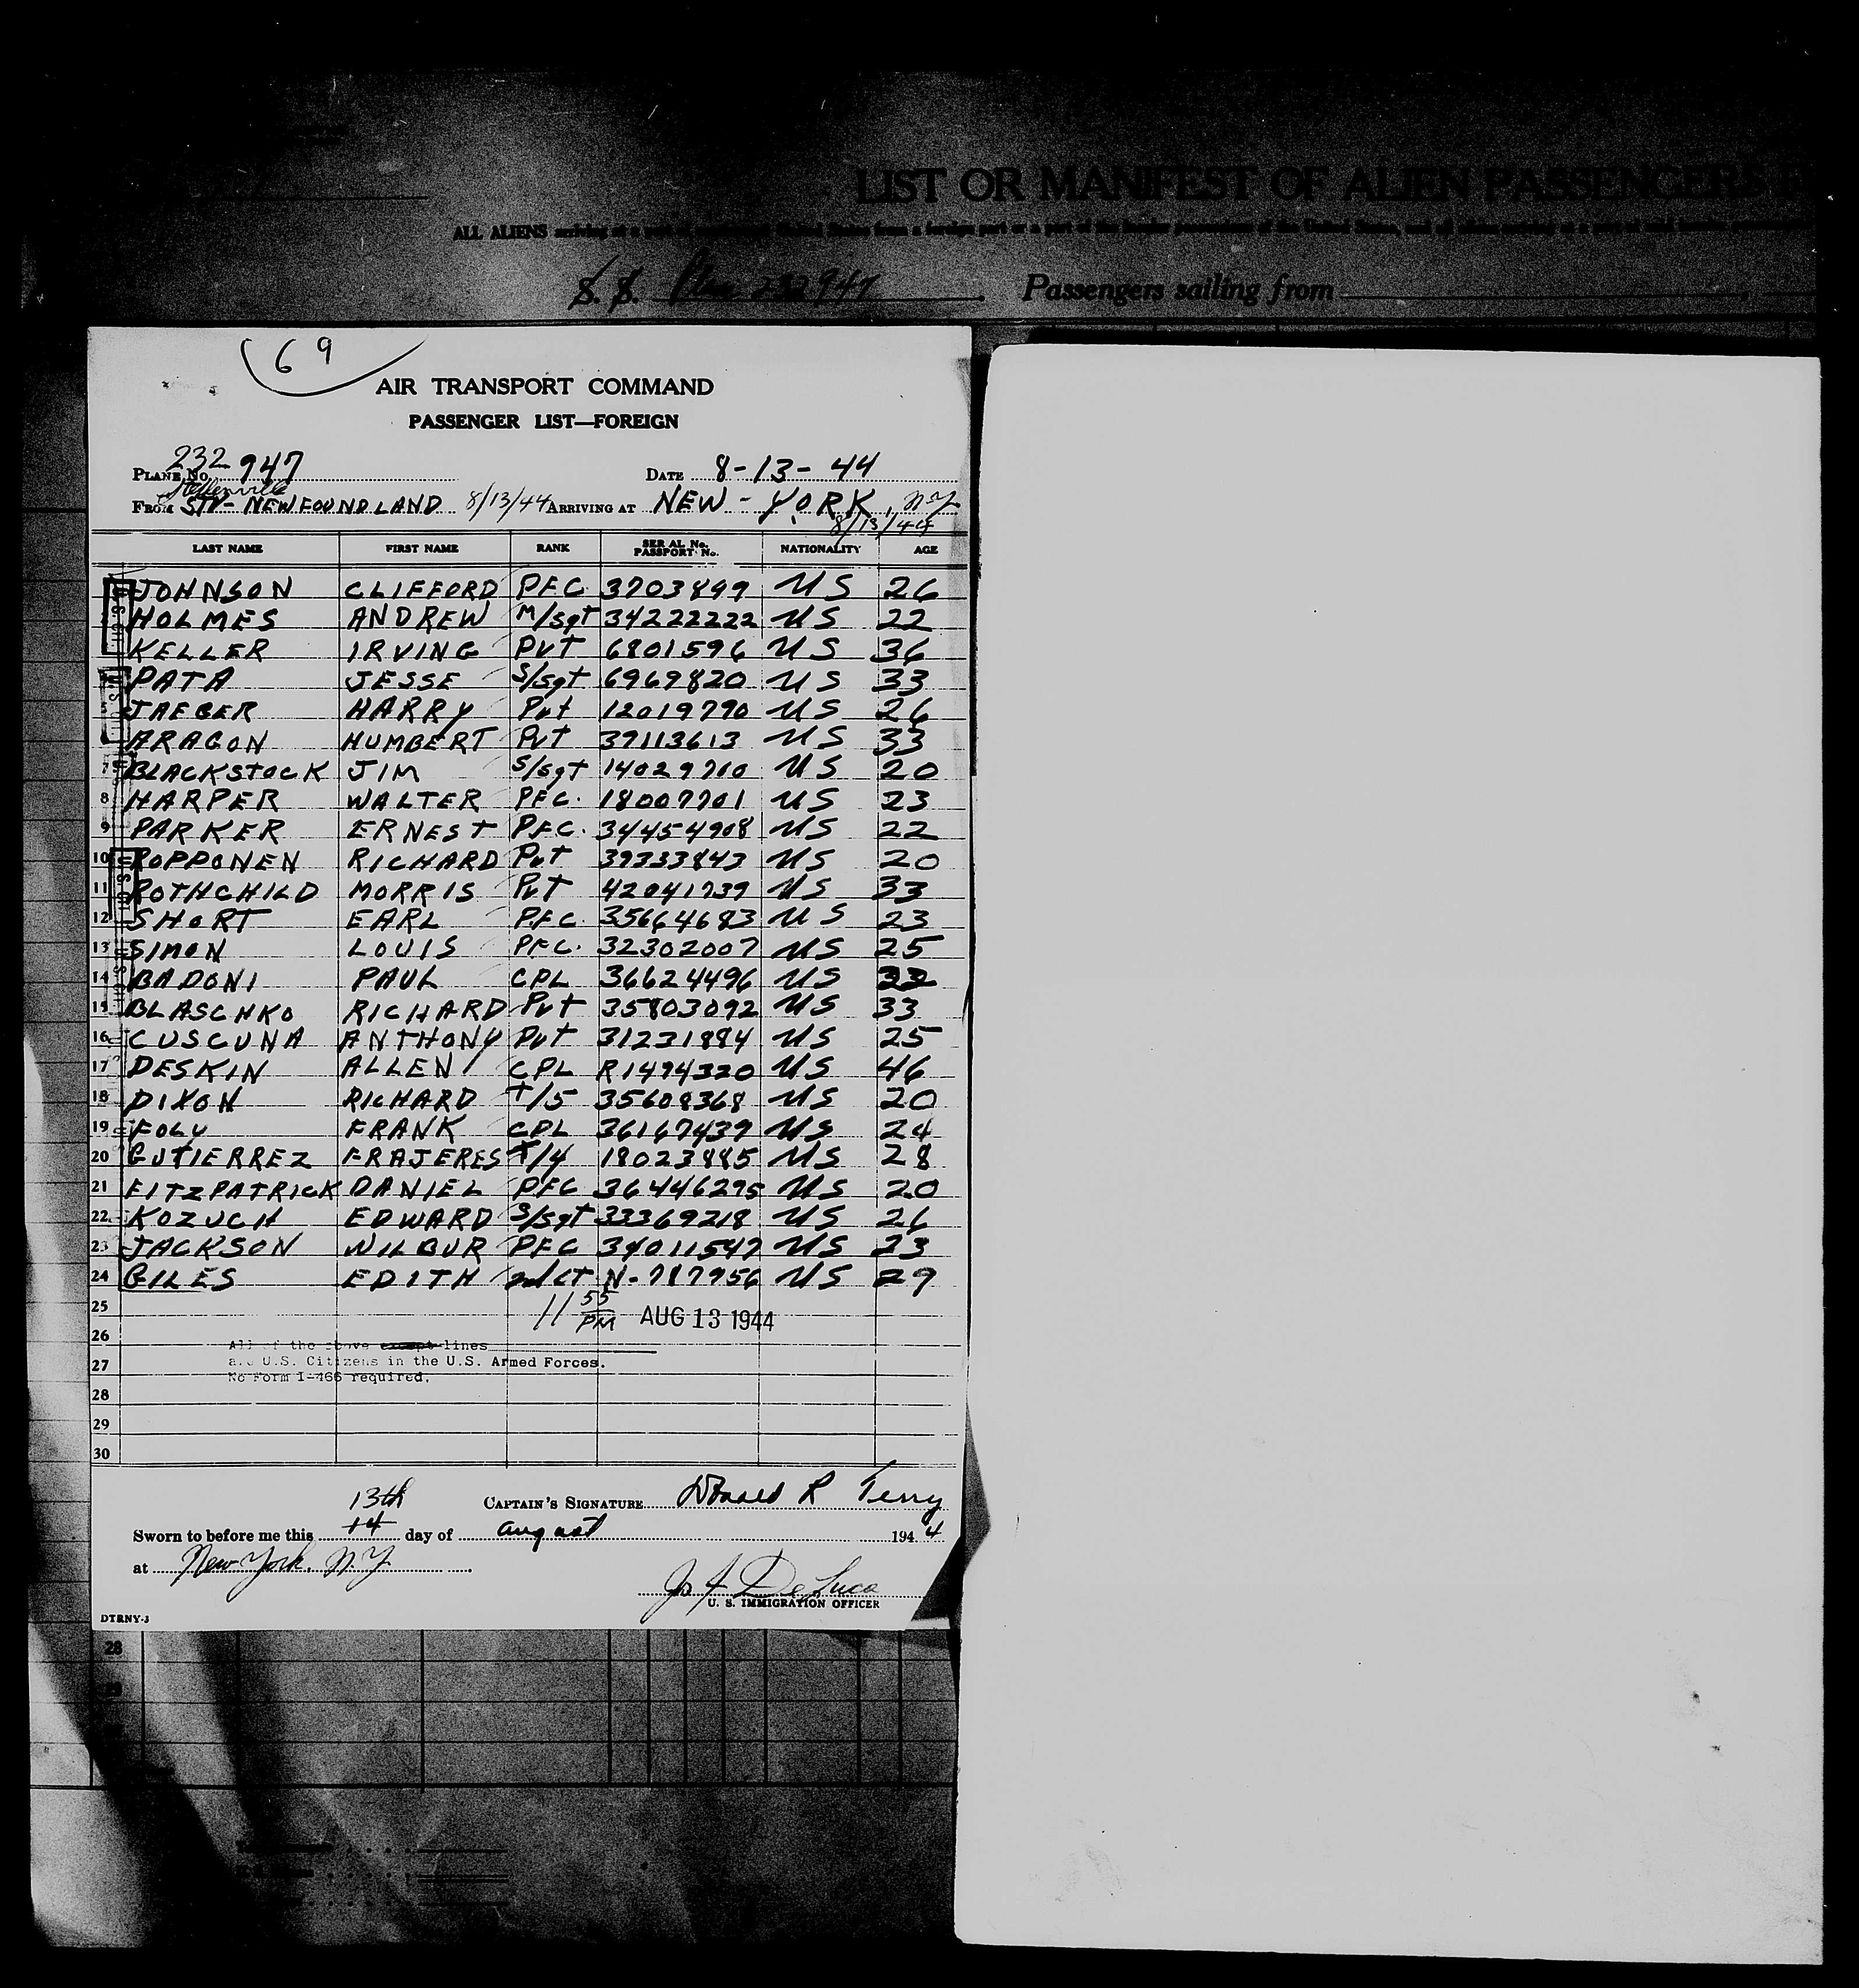 LIST OR MANIFEST OF ALIEN PASSENGERS
ALL ALIENS arriving at a port of continental United States from a foreign port or a port of the insular possessions of the United States, and all aliens arriving at a port of said insular possessions
S. S. Plane 232947 Passengers sailing from
69
AIR TRANSPORT COMMAND
PASSENGER LIST—FOREIGN
PLANE No. 232947 DATE 8-13-44
Stephenville
FROM STV- NEWFOUNDLAND 8/13/44 ARRIVING AT NEW-YORK, N.Y.
8/13/44
LAST NAME FIRST NAME RANK SERIAL No. PASSPORT No. NATIONALITY AGE
JOHNSON CLIFFORD PFC 3703899 US 26
HOLMES ANDREW M/Sgt 34222222 US 22
KELLER IRVING PVT 6801596 US 36
PATA JESSE S/Sgt 6969820 US 33
5 JAEGER HARRY Pvt 12019790 US 26
ARAGON HUMBERT Pvt 39113613 US 33
7 BLACKSTOCK JIM S/Sgt 14029710 US 20
8 HARPER WALTER PFC. 18007701 US 23
9 PARKER ERNEST PFC. 34454908 US 22
10 ROPPONEN RICHARD Pvt 39333843 US 20
11 ROTHCHILD MORRIS Pvt 42041739 US 33
12 SHORT EARL PFC. 35664683 US 23
13 SIMON LOUIS PFC. 32302007 US 25
14 BADONI PAUL CPL 36624496 US 22
15 BLASCHKO RICHARD Pvt 35803092 US 33
16 CUSCUNA ANTHONY Pvt 31231894 US 25
17 DESKIN ALLEN CPL R1494320 US 46
18 DIXON RICHARD T/5 35608368 US 20
19 FOLY FRANK CPL 36167439 US 24
20 GUTIERREZ FRAJERES T/4 18023885 US 28
21 FITZPATRICK DANIEL PFC 36446295 US 20
22 KOZUCH EDWARD S/Sgt 33369218 US 26
23 JACKSON WILBUR PFC 34011547 US 23
24 GILES EDITH 2nd LT N-787956 US 29
25 11 55 PM AUG 13 1944
26 All of the above except lines
27 are U.S. Citizens in the U.S. Armed Forces.
No Form I-466 required.
28
29
30
CAPTAIN'S SIGNATURE Donald R Terry
13th
Sworn to before me this 14 day of August 1944
at New York, N.Y.
Jos A De Luca
U. S. IMMIGRATION OFFICER
DTRNY-J
28